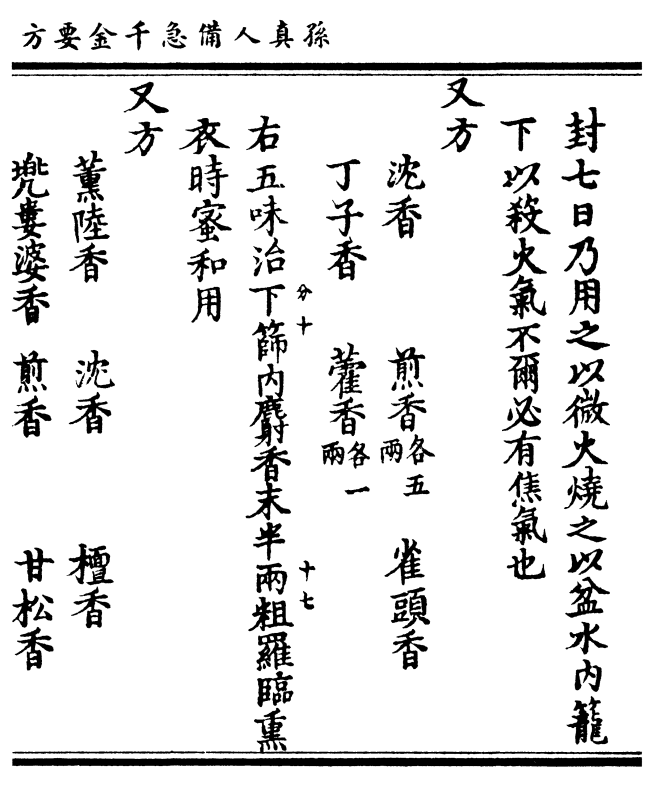 孫真人備急千金要方
封七日乃用之以微火燒之以盆水內籠
下以殺火氣不爾必有焦氣也
又方
沈香 煎香各五兩 雀頭香
丁子香 藿香各一兩
右五味治下篩內麝香末半兩粗羅臨熏
分十
十七
衣時蜜和用
又方
薰陸香 沈香 檀香
兜婁婆香 煎香 甘松香